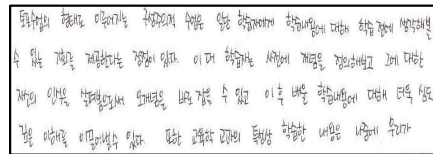 토론수업의 형태로 이루어지는 구성주의적 수업은 일단 학습자에게 학습내용에 대해 학습 전에 생각해볼
수 있는 기회를 제공한다는 장점이 있다. 이 때 학습자는 사전에 개념을 정의해보고 그에 대한
자신의 인식을 살펴봄으로써 오개념을 바로 잡을 수 있고 이후 배울 학습내용에 대해 더욱 심도
깊은 이해를 이끌어낼 수 있다. 또한 교육학 교과의 특성상 학습한 내용은 나중에 우리가